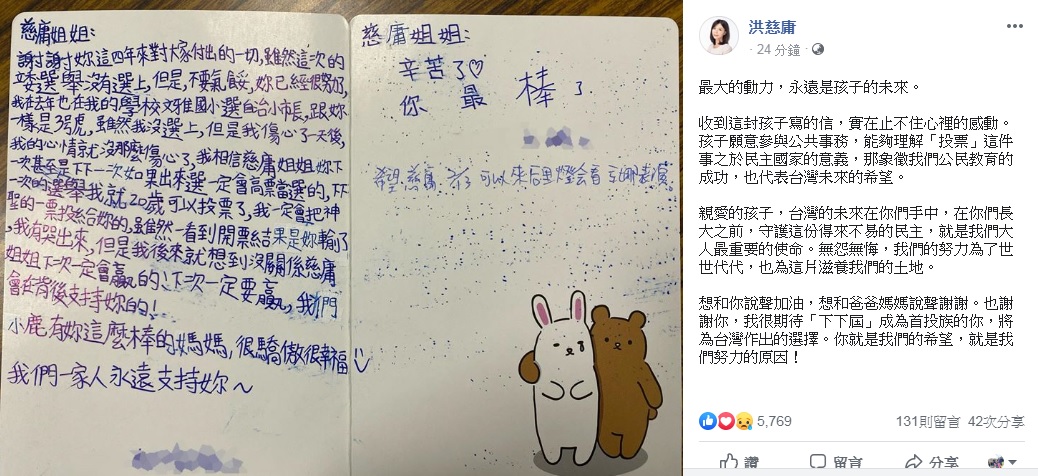 慈庸姐姐:
謝謝妳這四年來對大家付出的一切,雖然這次的
立委選舉沒有選上,但是,不要氣餒,妳已經很努力,
我在去年也在我的學校文雅國小選自治小市長,跟妳
一樣是3號,雖然我沒選上,但是我傷心了一天後,
我的心情就沒那麼傷心了,我相信慈庸姐姐妳下
一次甚至是下下一次如果出來選一定會高票當選的,下下
一次的選舉我就20歲可以投票了,我一定會把神
聖的一票投給妳的,雖然一看到開票結果是妳輸了
,我有哭出來,但是我後來就想到沒關係慈庸
姐姐下次一定會贏的!下次一定要贏,我們
會在背後支持妳的!
小鹿有妳這麼棒的媽媽,很驕傲很幸福
我們一家人永遠支持妳~
慈庸姐姐:
辛苦了♡
你最棒了
希望慈庸 可以來后里燈會看
洪慈庸
24 分鐘 ·
最大的動力,永遠是孩子的未來。
收到這封孩子寫的信,實在止不住心裡的感動。
孩子願意參與公共事務,能夠理解「投票」這件
事之於民主國家的意義,那象徵我們公民教育的
成功,也代表台灣未來的希望。
親愛的孩子,台灣的未來在你們手中,在你們長
大之前,守護這份得來不易的民主,就是我們大
人最重要的使命。無怨無悔,我們的努力為了世
世代代,也為這片滋養我們的土地。
想和你說聲加油,想和爸爸媽媽說聲謝謝。也謝
謝你,我很期待「下下屆」成為首投族的你,將
為台灣作出的選擇。你就是我們的希望,就是我
們努力的原因!
5,769
131則留言 42次分享
讚 留言 分享